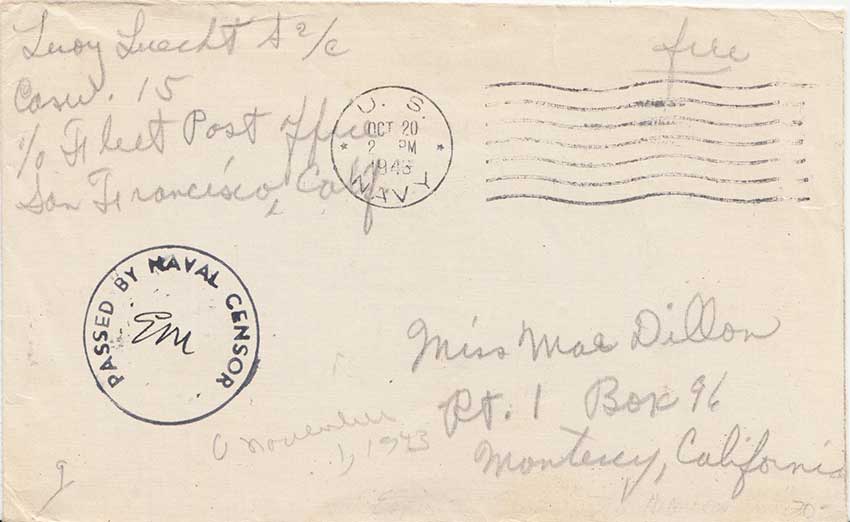 Leroy Luecht S2/c
Casu. 15
c/o Fleet Post Office
San Francisco, Calif.
free
U. S.
OCT 20
2 PM
1943
NAVY
PASSED BY NAVAL CENSOR
EM
Miss Mae Dillon
Rt. 1 Box 96
Monterey, California
November
1, 1943
9